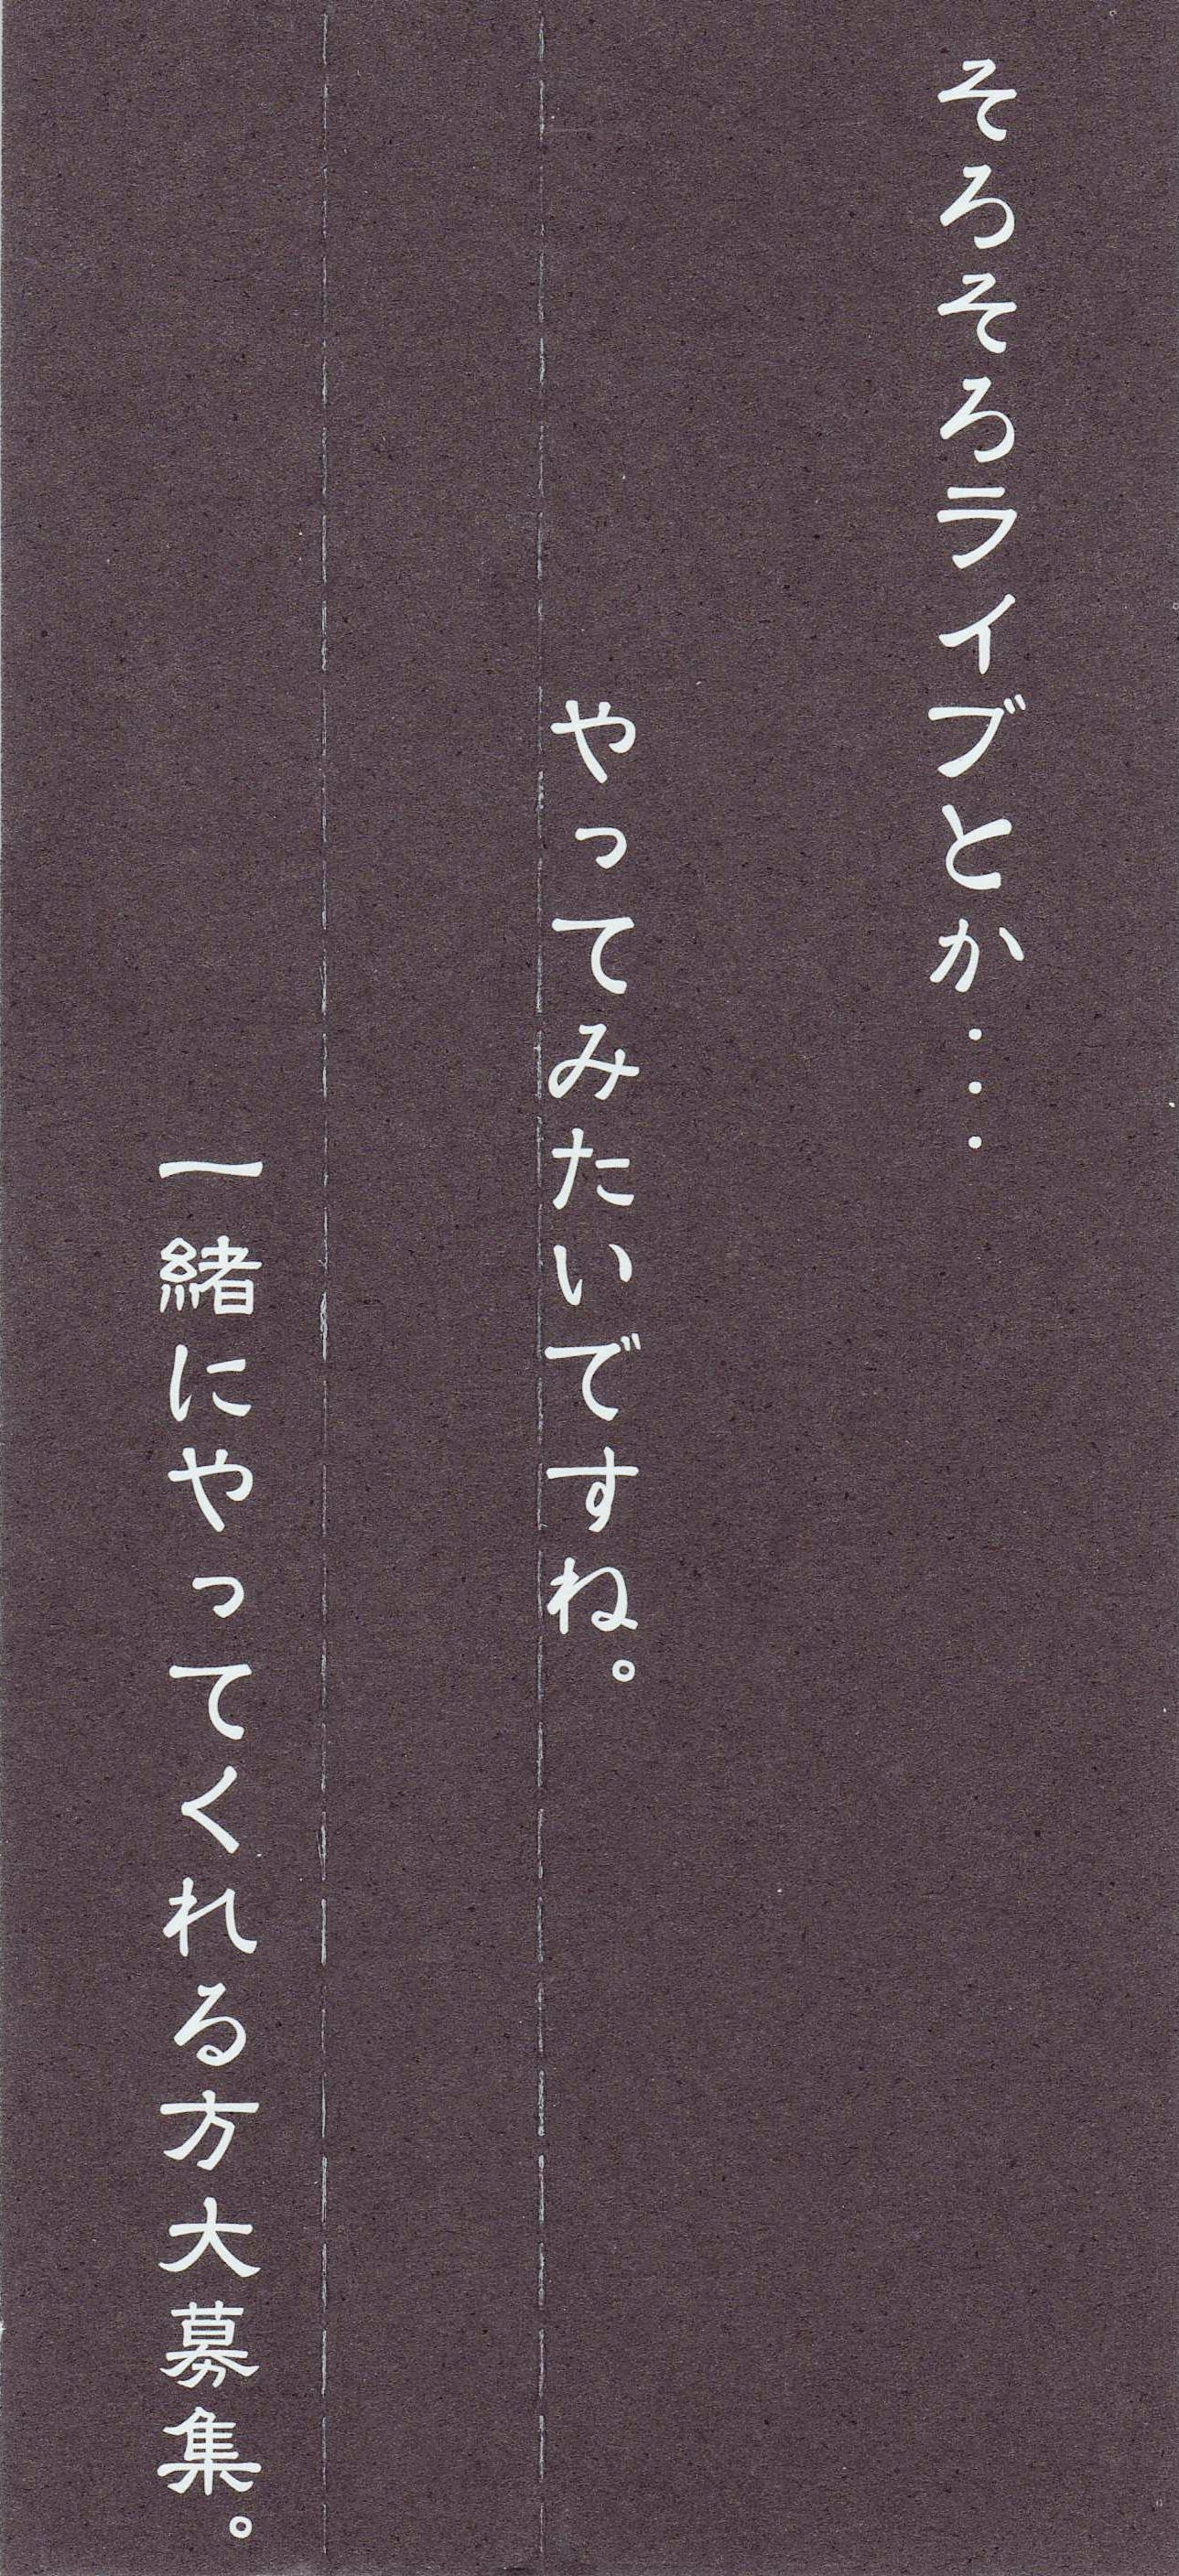 そろそろライブとか...
やってみたいですね。
一緒にやってくれる方大募集。